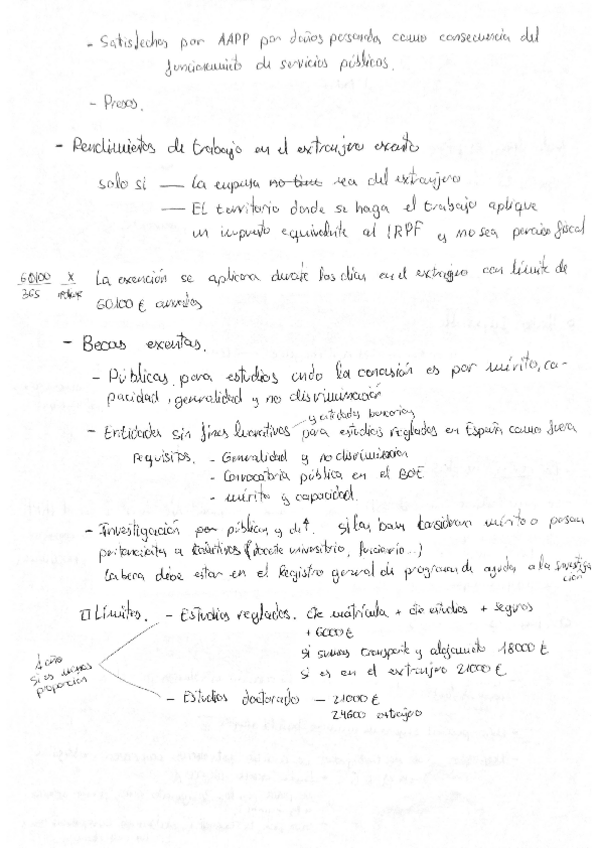 - Satisfechas por AAPP por daños personales como consecuencia del
funcionamiento de servicios públicos.
- Presos.
- Rendimientos de trabajo en el extranjero exento
solo si — La empresa no tiene sea del extranjero
— El territorio donde se haga el trabajo aplique
un impuesto equivalente al IRPF y no sea paraiso fiscal
60100 x
365
La exención se aplicara durante los días en el extranjero con límite de
60.100 € anuales
- Becas exentas.
- Públicas, para estudios cndo la concesión es por mérito, ca-
pacidad, generalidad y no discriminación
y entidades bancarias
- Entidades sin fines lucrativos para estudios reglados en España como fuera
requisitos. - Generalidad y no discriminacion
- Convocatoria pública en el BOE
- mérito y capacidad.
- Investigación por públicas y si las bases consideran mérito o personas
pertenecientes a colectivos (docente universitario, funcionario...)
La beca debe estar en el Registro general de programas de ayudas a la investiga
ción
Límites. - Estudios reglados. Cte matrícula + cte estudios + seguros
+ 6000 €
si sumas transporte y alojamiento 18000 €
si es en el extranjero 21000 €
1 año
si es menos
proporción
- Estudios doctorado — 21000 €
24600 extranjero